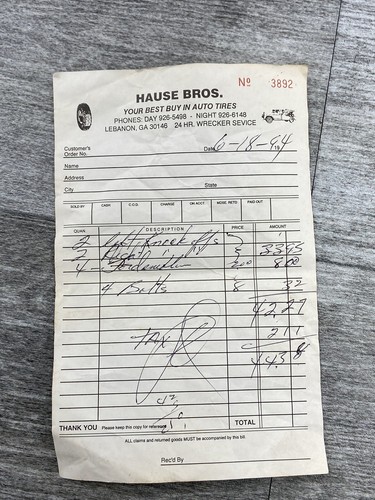 No 3892
HAUSE BROS.
YOUR BEST BUY IN AUTO TIRES
PHONES: DAY 926-5498 - NIGHT 926-6148
LEBANON, GA 30146 24 HR. WRECKER SEVICE
Customer's
Order No. Date 6-18-94
Name
Address
City State
SOLD BY CASH C.O.D. CHARGE ON ACCT. MDSE. RETD. PAID OUT
QUAN. DESCRIPTION PRICE AMOUNT
2 Left Knock offs
2 Right 33 95
4 8 00
4 Bolts 8 32
42.27
TAX 2 11
44.38
THANK YOU Please keep this copy for reference TOTAL
ALL claims and returned goods MUST be accompanied by this bill.
Rec'd By